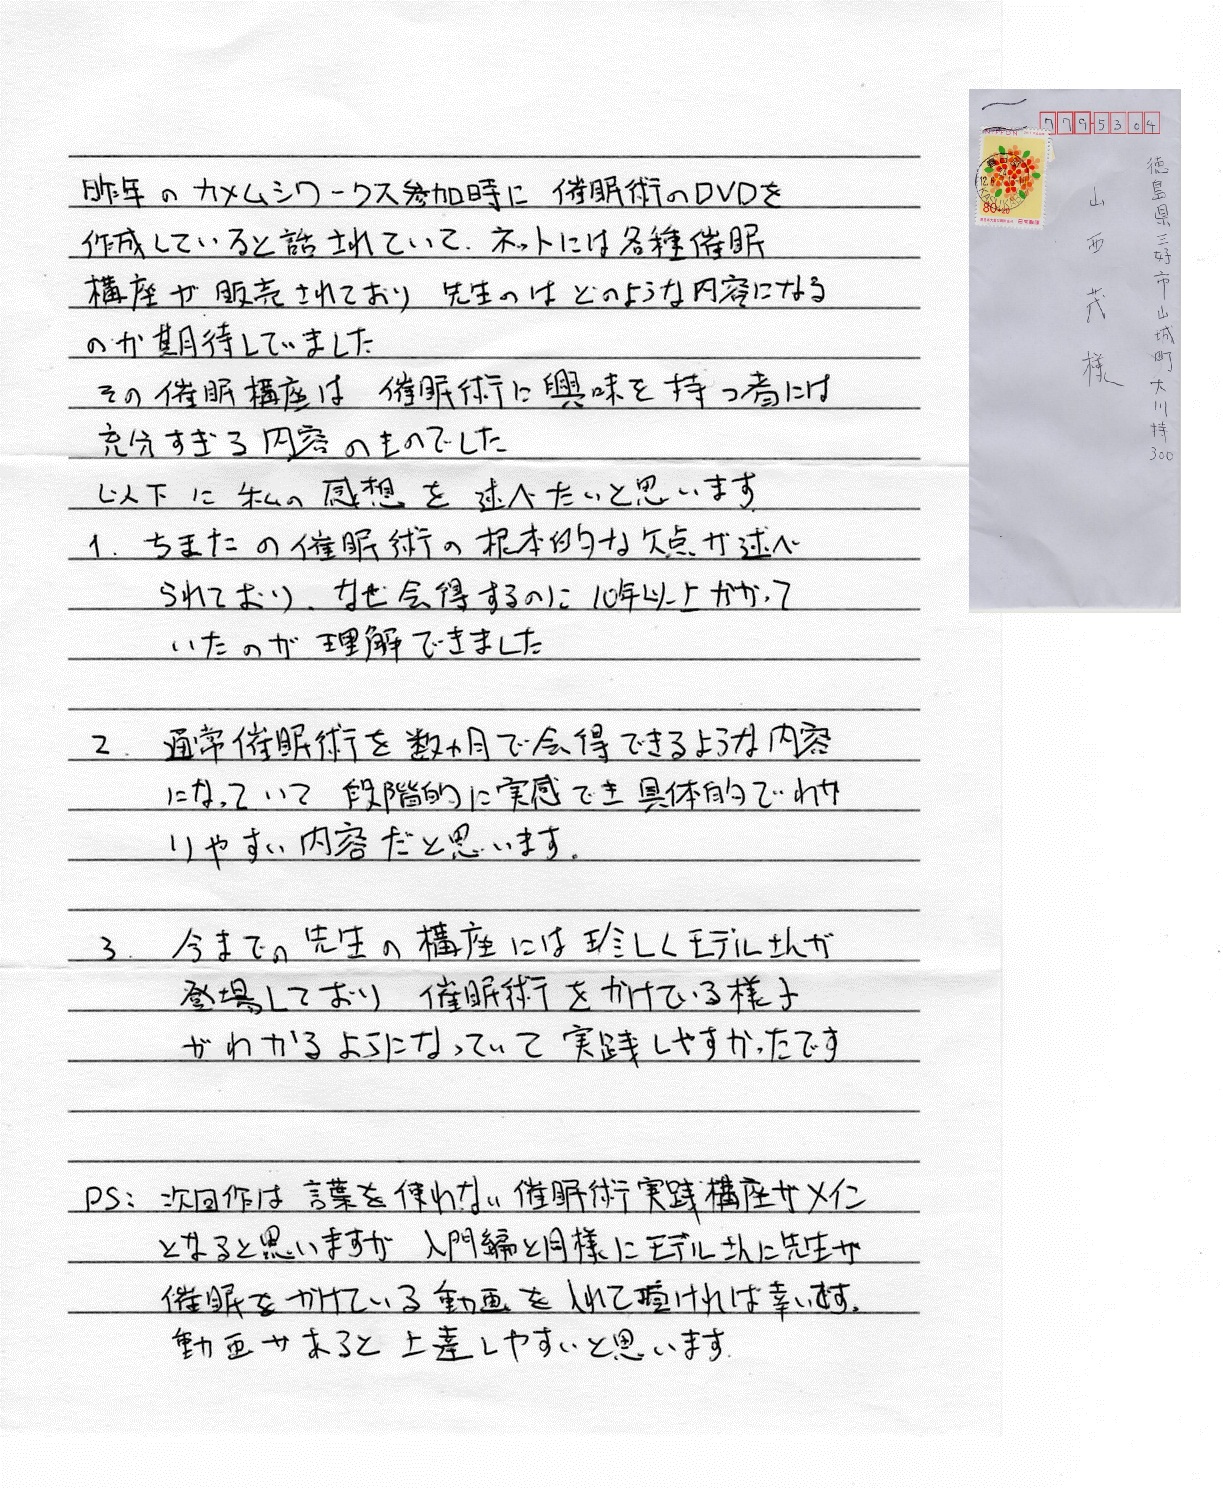 昨年のカメムシワークス参加時に 催眠術のDVDを
作成していると話されていて、ネットには各種催眠
講座が販売されており 先生のはどのような内容になる
のか期待していました
その催眠講座は 催眠術に興味を持つ者には
充分すぎる内容のものでした
以下に私の感想を述べたいと思います
1. ちまたの催眠術の根本的な欠点が述べ
られており、なぜ会得するのに10年以上かかって
いたのが理解できました
2. 通常催眠術を数ヵ月で会得できるような内容
になっていて 段階的に実感でき具体的でわか
りやすい内容だと思います。
3. 今までの先生の講座には珍しくモデルさんが
登場しており 催眠術をかけている様子
がわかるようになっていて 実践しやすかったです
PS: 次回作は言葉を使わない催眠術実践講座がメイン
となると思いますが 入門編と同様にモデルさんに先生が
催眠をかけている動画を入れて頂ければ幸いです。
動画があると上達しやすいと思います。
779-5304
徳島県三好市山城町大川持300
山西茂様
80+20
日本郵便
NIPPON